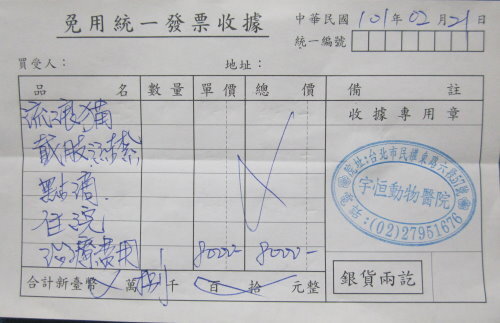 免用統一發票收據
中華民國 101 年 02 月 21 日
統一編號
買受人： 地址：
品名 數量 單價 總價 備註
流浪猫 收據專用章
截肢結紮
點滴
住院
治療費用 8000- 8000-
院址:台北市民權東路六段57號
宇恒動物醫院
電話:(02)27951676
合計新臺幣 萬捌千 百 拾 元整
銀貨兩訖